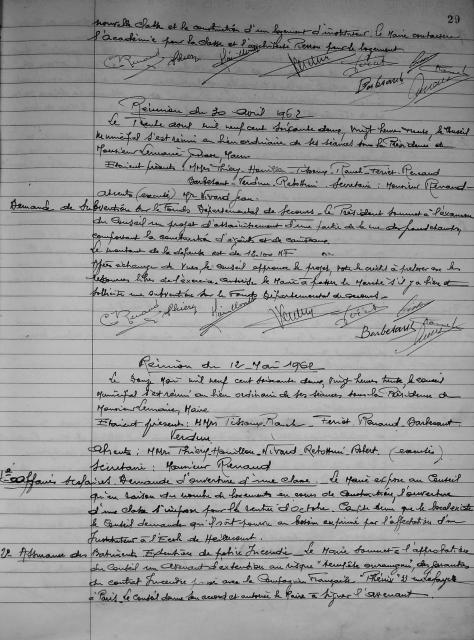 29
nouvelle classe et la construction d'un logement d'instituteur. Le Maire contactera
l'académie pour la classe et l'architecte pour le logement
Réunion du 30 Avril 1962
Le Trente Avril mil neuf cent soixante deux, vingt heures trente, le Conseil
Municipal s'est réuni au lieu ordinaire de ses séances sous la Présidence de
Monsieur Lemaire, Maire
Etaient présents : MMrs Thiery. Hamillon. Tissoux. Rauch. Feriet. Renaud
Barbesant. Verdun. Retottini. Secrétaire : Monsieur Renaud
absents (excusés) Mr Nivard Jean.
Demande de Subvention sur le Fonds Départemental de Secours. Le Président soumet à l'examen
du Conseil un projet d'assainissement d'une partie de la rue
comportant la construction d'égouts et de caniveaux
Le montant de la dépense est de NF
Après échange de vues le Conseil approuve le projet, vote le crédit à prélever sur les
ressources libres de l'exercice. Autorise le Maire à passer le Marché s'il y a lieu et
sollicite une subvention sur le Fonds Départemental de secours
C. Renaud Thiery Verdun Feriet
Barbesant
Réunion du 12 Mai 1962
Le Douze Mai mil neuf cent soixante deux, vingt heures trente le conseil
Municipal s'est réuni au lieu ordinaire de ses séances sous la Présidence de
Monsieur Lemaire, Maire
Etaient présents : MMrs Tissoux. Rauch. Feriet. Renaud. Barbesant
Verdun
Absents : MMrs Thiery. Hamillon. Nivard. Retottini. (excusés)
Secrétaire : Monsieur Renaud
1° Affaires Scolaires. Demande d'ouverture d'une classe. Le Maire expose au Conseil
qu'en raison du nombre de logements en cours de construction, l'ouverture
d'une classe s'impose pour la rentrée d'Octobre.
le Conseil demande qu'il soit pourvu au besoin exprimé par l'affectation d'un
Instituteur à l'Ecole de
2° Assurances des Batiments Extension de police Incendie. Le Maire soumet à l'approbation
du Conseil un avenant d'extension au risque "tempête ouragan", des garanties
du contrat Incendie passé avec la Compagnie Française "Phénix" 33 rue Lafayette
à Paris. Le Conseil donne son accord et autorise le Maire à signer l'avenant.